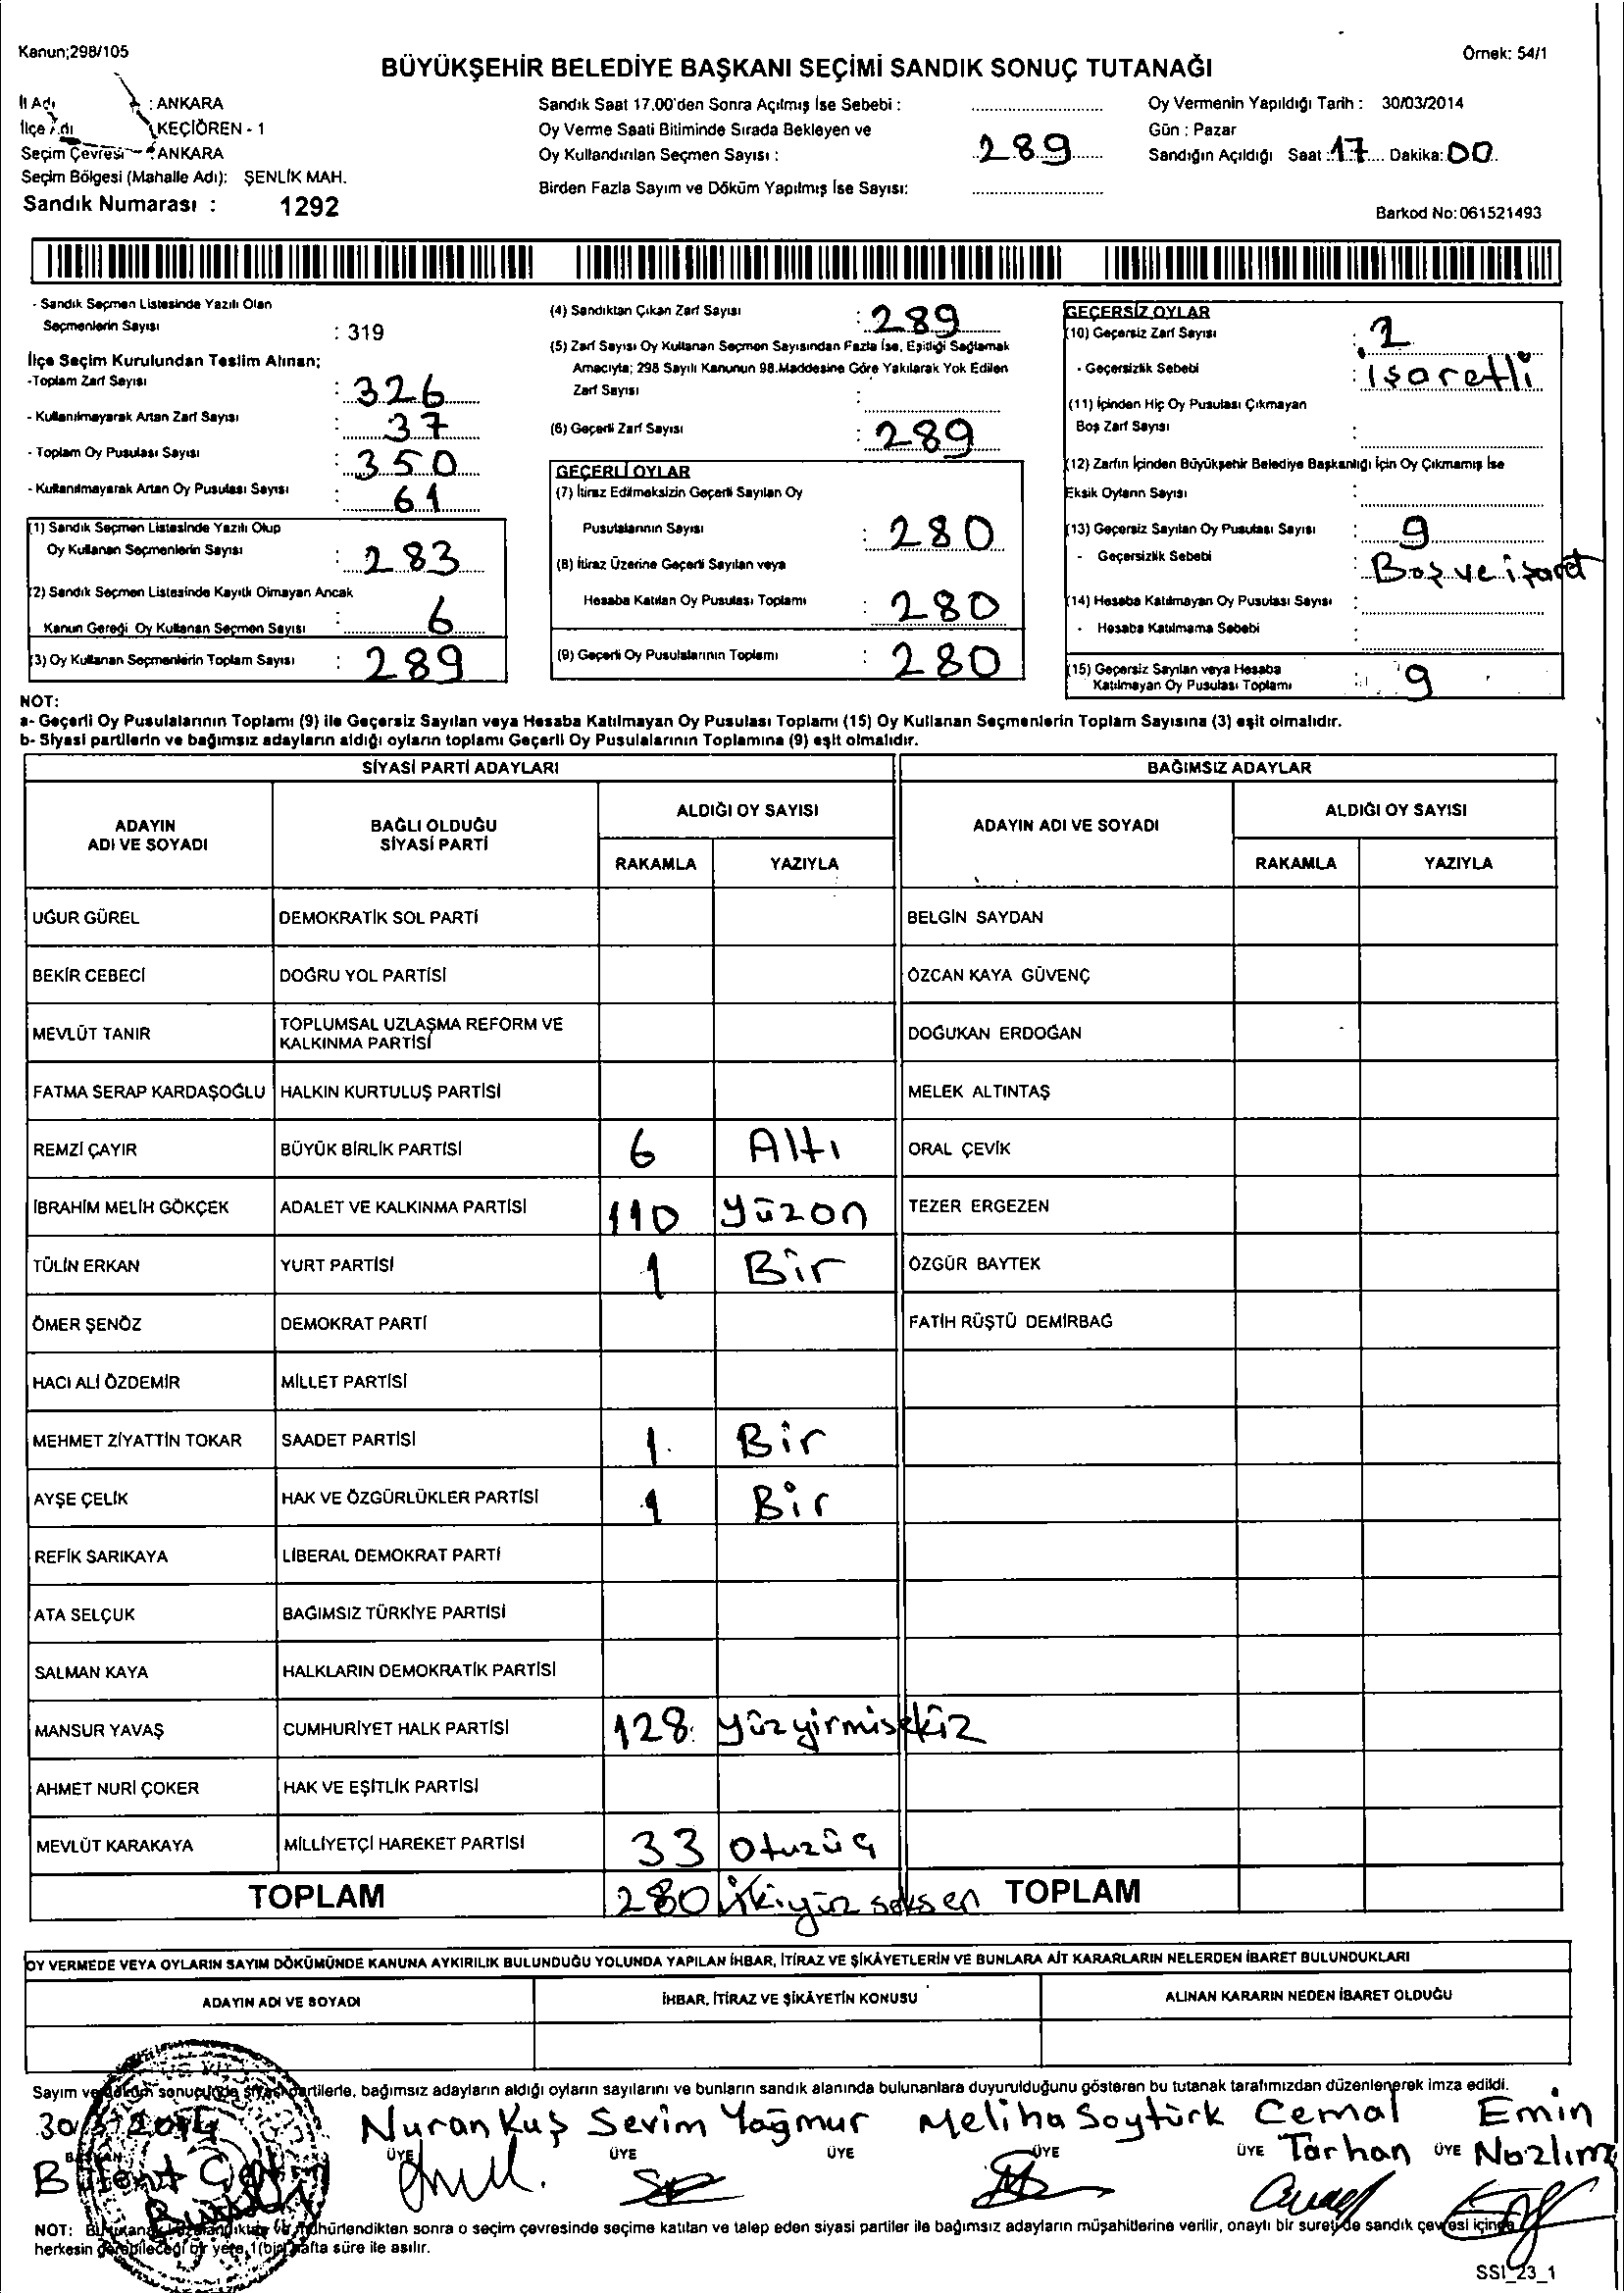 Kanun;298/105
Örnek: 54/1
BÜYÜKŞEHİR BELEDİYE BAŞKANI SEÇİMİ SANDIK SONUÇ TUTANAĞI
İl Adı : ANKARA
İlçe Adı : KEÇİÖREN - 1
Seçim Çevresi : ANKARA
Seçim Bölgesi (Mahalle Adı): ŞENLİK MAH.
Sandık Numarası : 1292
Sandık Saat 17.00'den Sonra Açılmış İse Sebebi :
Oy Verme Saati Bitiminde Sırada Bekleyen ve
Oy Kullandırılan Seçmen Sayısı : 289
Birden Fazla Sayım ve Döküm Yapılmış İse Sayısı:
Oy Vermenin Yapıldığı Tarih : 30/03/2014
Gün : Pazar
Sandığın Açıldığı Saat : 17 Dakika: 00
Barkod No: 061521493
- Sandık Seçmen Listesinde Yazılı Olan
Seçmenlerin Sayısı : 319
İlçe Seçim Kurulundan Teslim Alınan;
-Toplam Zarf Sayısı : 326
- Kullanılmayarak Artan Zarf Sayısı : 37
- Toplam Oy Pusulası Sayısı : 350
- Kullanılmayarak Artan Oy Pusulası Sayısı : 61
(1) Sandık Seçmen Listesinde Yazılı Olup
Oy Kullanan Seçmenlerin Sayısı : 283
(2) Sandık Seçmen Listesinde Kayıtlı Olmayan Ancak
Kanun Gereği Oy Kullanan Seçmen Sayısı : 6
(3) Oy Kullanan Seçmenlerin Toplam Sayısı : 289
(4) Sandıktan Çıkan Zarf Sayısı : 289
(5) Zarf Sayısı Oy Kullanan Seçmen Sayısından Fazla İse, Eşitliği Sağlamak
Amacıyla; 298 Sayılı Kanunun 98.Maddesine Göre Yakılarak Yok Edilen
Zarf Sayısı :
(6) Geçerli Zarf Sayısı : 289
GEÇERLİ OYLAR
(7) İtiraz Edilmeksizin Geçerli Sayılan Oy
Pusulalarının Sayısı : 280
(8) İtiraz Üzerine Geçerli Sayılan veya
Hesaba Katılan Oy Pusulası Toplamı : 280
(9) Geçerli Oy Pusulalarının Toplamı : 280
GEÇERSİZ OYLAR
(10) Geçersiz Zarf Sayısı : 2
- Geçersizlik Sebebi : işaretli
(11) İçinden Hiç Oy Pusulası Çıkmayan
Boş Zarf Sayısı :
(12) Zarfın İçinden Büyükşehir Belediye Başkanlığı İçin Oy Çıkmamış İse
Eksik Oyların Sayısı :
(13) Geçersiz Sayılan Oy Pusulası Sayısı : 9
- Geçersizlik Sebebi : Boş ve işaret
(14) Hesaba Katılmayan Oy Pusulası Sayısı :
- Hesaba Katılmama Sebebi :
(15) Geçersiz Sayılan veya Hesaba
Katılmayan Oy Pusulası Toplamı : 9
NOT:
a- Geçerli Oy Pusulalarının Toplamı (9) ile Geçersiz Sayılan veya Hesaba Katılmayan Oy Pusulası Toplamı (15) Oy Kullanan Seçmenlerin Toplam Sayısına (3) eşit olmalıdır.
b- Siyasi partilerin ve bağımsız adayların aldığı oyların toplamı Geçerli Oy Pusulalarının Toplamına (9) eşit olmalıdır.
SİYASİ PARTİ ADAYLARI BAĞIMSIZ ADAYLAR
ADAYIN ADI VE SOYADI BAĞLI OLDUĞU SİYASİ PARTİ ALDIĞI OY SAYISI ADAYIN ADI VE SOYADI ALDIĞI OY SAYISI
RAKAMLA YAZIYLA RAKAMLA YAZIYLA
UĞUR GÜREL DEMOKRATİK SOL PARTİ BELGİN SAYDAN
BEKİR CEBECİ DOĞRU YOL PARTİSİ ÖZCAN KAYA GÜVENÇ
MEVLÜT TANIR TOPLUMSAL UZLAŞMA REFORM VE KALKINMA PARTİSİ DOĞUKAN ERDOĞAN
FATMA SERAP KARDAŞOĞLU HALKIN KURTULUŞ PARTİSİ MELEK ALTINTAŞ
REMZİ ÇAYIR BÜYÜK BİRLİK PARTİSİ 6 Altı ORAL ÇEVİK
İBRAHİM MELİH GÖKÇEK ADALET VE KALKINMA PARTİSİ 110 yüzon TEZER ERGEZEN
TÜLİN ERKAN YURT PARTİSİ 1 Bir ÖZGÜR BAYTEK
ÖMER ŞENÖZ DEMOKRAT PARTİ FATİH RÜŞTÜ DEMİRBAĞ
HACI ALİ ÖZDEMİR MİLLET PARTİSİ
MEHMET ZİYATTİN TOKAR SAADET PARTİSİ 1 Bir
AYŞE ÇELİK HAK VE ÖZGÜRLÜKLER PARTİSİ 1 Bir
REFİK SARIKAYA LİBERAL DEMOKRAT PARTİ
ATA SELÇUK BAĞIMSIZ TÜRKİYE PARTİSİ
SALMAN KAYA HALKLARIN DEMOKRATİK PARTİSİ
MANSUR YAVAŞ CUMHURİYET HALK PARTİSİ 128 yüzyirmisekiz
AHMET NURİ ÇOKER HAK VE EŞİTLİK PARTİSİ
MEVLÜT KARAKAYA MİLLİYETÇİ HAREKET PARTİSİ 33 otuzüç
TOPLAM 280 ikiyüzseksen TOPLAM
OY VERMEDE VEYA OYLARIN SAYIM DÖKÜMÜNDE KANUNA AYKIRILIK BULUNDUĞU YOLUNDA YAPILAN İHBAR, İTİRAZ VE ŞİKÂYETLERİN VE BUNLARA AİT KARARLARIN NELERDEN İBARET BULUNDUKLARI
ADAYIN ADI VE SOYADI İHBAR, İTİRAZ VE ŞİKÂYETİN KONUSU ALINAN KARARIN NEDEN İBARET OLDUĞU
Sayım ve döküm sonucunda siyasi partilerle, bağımsız adayların aldığı oyların sayılarını ve bunların sandık alanında bulunanlara duyurulduğunu gösteren bu tutanak tarafımızdan düzenlenerek imza edildi.
30/3/2014 Nuran Kuş Sevim Yağmur Meliha Soytürk Cemal Tarhan Emin Nazlım
BAŞKAN ÜYE ÜYE ÜYE ÜYE ÜYE ÜYE
Bülent
NOT: Bu tutanak mühürlendikten sonra o seçim çevresinde seçime katılan ve talep eden siyasi partiler ile bağımsız adayların müşahitlerine verilir, onaylı bir sureti de sandık çevresi içinde
herkesin görebileceği bir yere, 1(bir) hafta süre ile asılır.
SSI_23_1